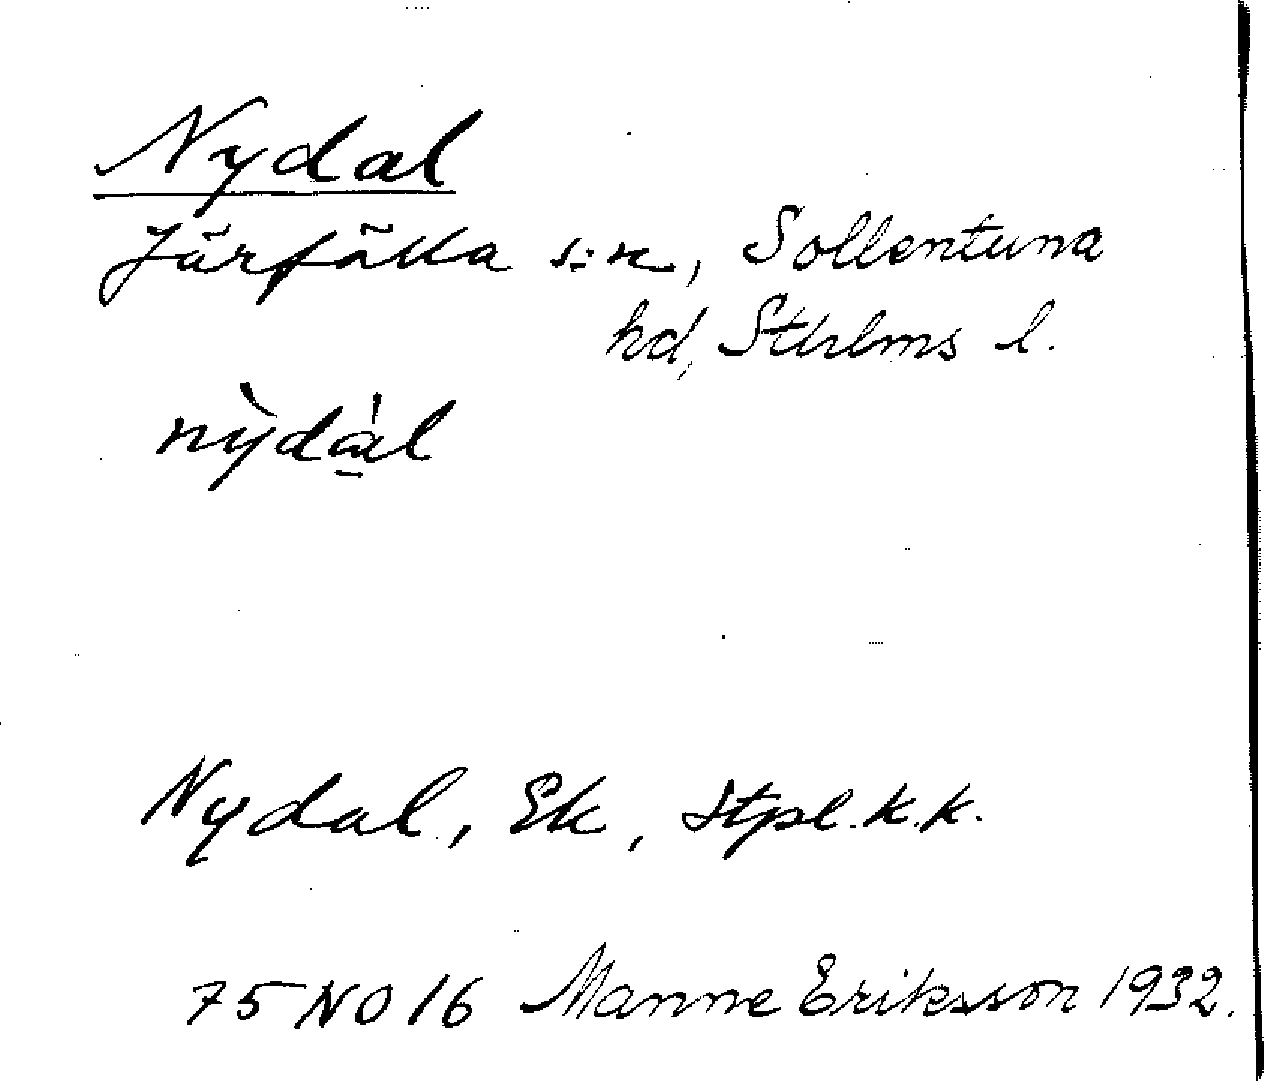 Nydal
Järfälla s:n, Sollentuna
hd, Sthlms l.
nỳdá̱l
Nydal, Ek, Stpl. k.k.
75 NO 16 Manne Eriksson 1932.